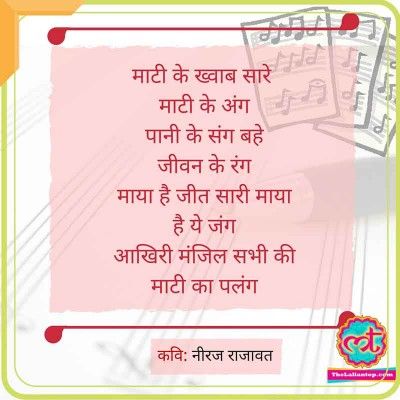 माटी के ख्वाब सारे
माटी के अंग
पानी के संग बहे
जीवन के रंग
माया है जीत सारी माया
है ये जंग
आखिरी मंजिल सभी की
माटी का पलंग
कवि: नीरज राजावत
TheLallantop.com